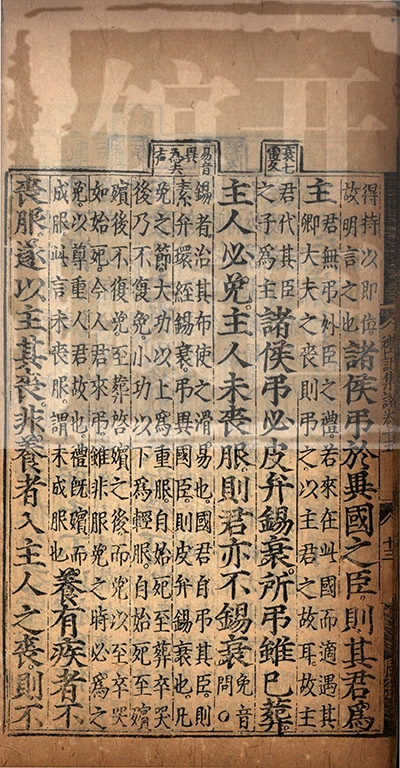 得持以即位
故明言之也
諸侯弔於異國之臣則其君爲
主
君無弔外臣之禮若來在此國而適遇其
卿大夫之喪則弔之以主君之故耳故主
君代其臣
之子爲主
諸侯弔必皮弁錫衰所弔雖已葬
主人必免主人未喪服則君亦不錫衰
免音
問○
錫者治其布使之滑易也國君自弔其臣則
素弁環絰錫衰弔異國臣則皮弁錫衰也凡
免之節大功以上爲重服自始死至葬卒哭
後乃不復免小功以下爲輕服自始死至殯
殯後不復免至葬啓殯之後而免以至卒哭
如始死今人君來弔雖非服免之時必爲之
免以尊重人君故也禮旣殯而
成服此言未喪服謂未成服也
養有疾者不
喪服遂以主其喪非養者入主人之喪則不
衰七
雷反
易音
異爲去
声
十三